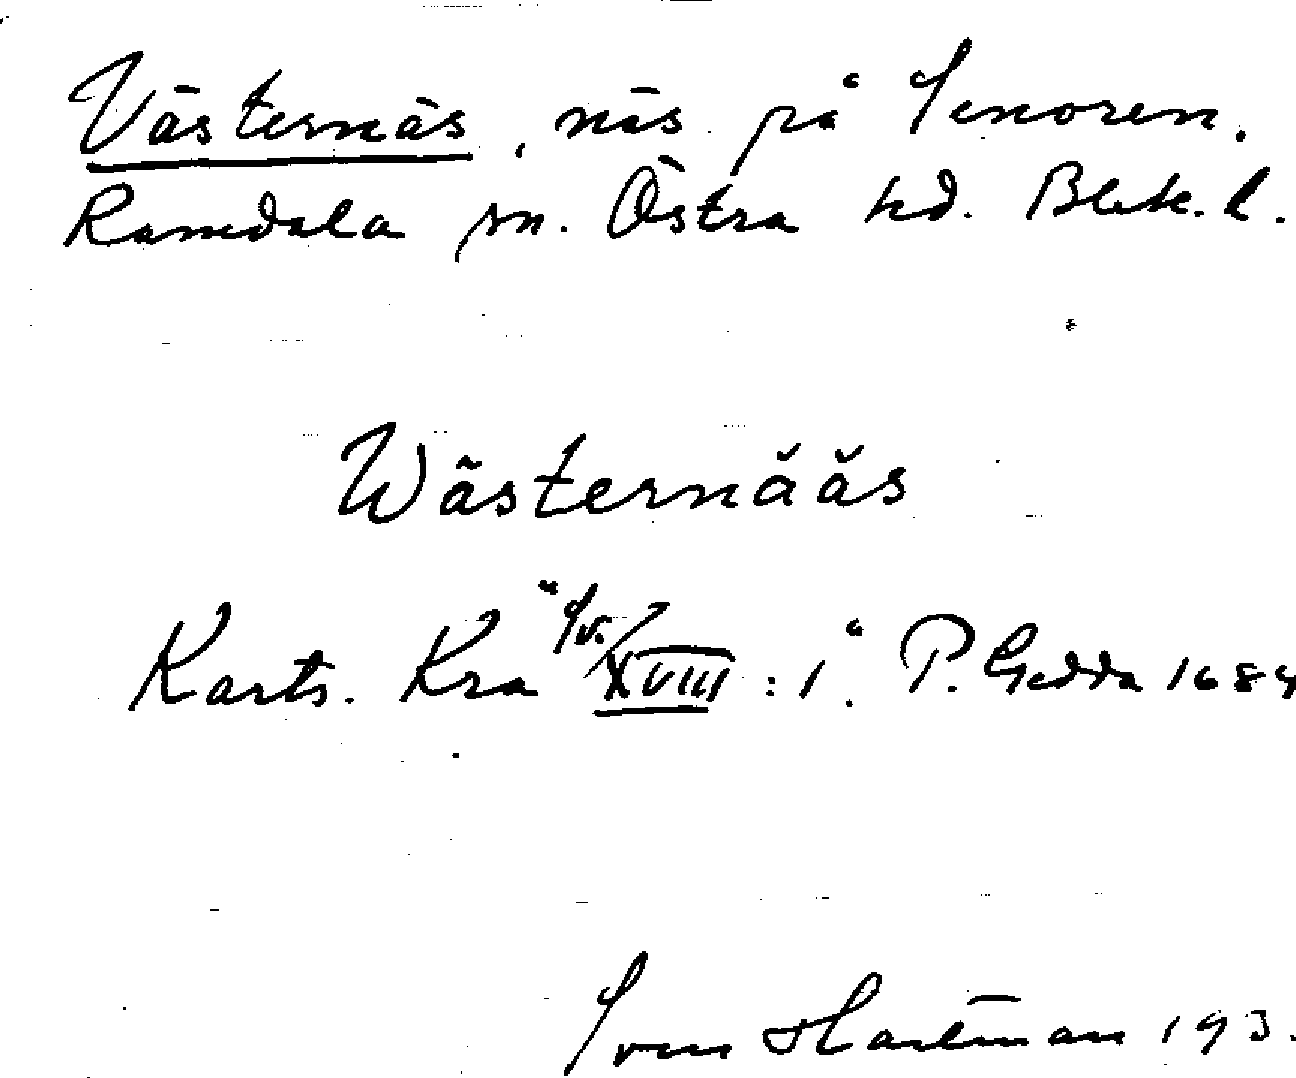 Västernäs, näs på Senoren.
Ramdala sn. Östra hd. Blek. l.
Wästernääs
Karts. Kra "S/v. XVIII : 1." P. Gedda 1684
Sven Hartman 193.